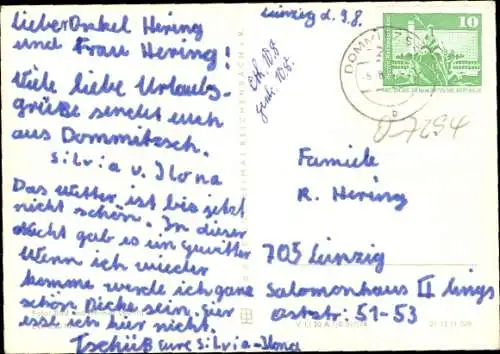 lieber Onkel Hering
und Frau Hering!
Viele liebe Urlaubs-
grüße sendet euch
aus Dommitzsch.
Silvia u. Ilona
Das Wetter ist bis jetzt
nicht schön. In dieser
Nacht gab es ein Gewitter
Wenn ich wieder
komme werde ich ganz
schön Dicke sein.
esse ich hier nicht.
Tschüß eure Silvia-Ilona
Leipzig d. 9.8.
Erh. 10.8
10.8.
10
DOMMITZSCH
b
0-7294
Familie
R. Hering
705 Leipzig
Salomonhaus II links
Oststr. 51-53